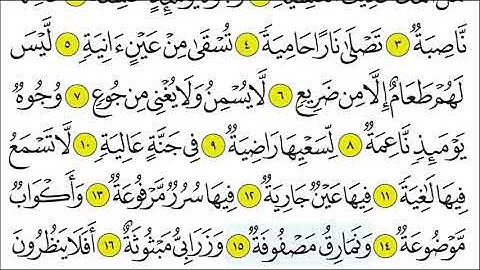 نَّاصِبَةٌ ٣ تَصْلَىٰ نَارًا حَامِيَةً ٤ تُسْقَىٰ مِنْ عَيْنٍ ءَانِيَةٍ ٥ لَّيْسَ
لَهُمْ طَعَامٌ إِلَّا مِن ضَرِيعٍ ٦ لَّا يُسْمِنُ وَلَا يُغْنِى مِن جُوعٍ ٧ وُجُوهٌ
يَوْمَئِذٍ نَّاعِمَةٌ ٨ لِّسَعْيِهَا رَاضِيَةٌ ٩ فِى جَنَّةٍ عَالِيَةٍ ١٠ لَّا تَسْمَعُ
فِيهَا لَٰغِيَةً ١١ فِيهَا عَيْنٌ جَارِيَةٌ ١٢ فِيهَا سُرُرٌ مَّرْفُوعَةٌ ١٣ وَأَكْوَابٌ
مَّوْضُوعَةٌ ١٤ وَنَمَارِقُ مَصْفُوفَةٌ ١٥ وَزَرَابِىُّ مَبْثُوثَةٌ ١٦ أَفَلَا يَنظُرُونَ